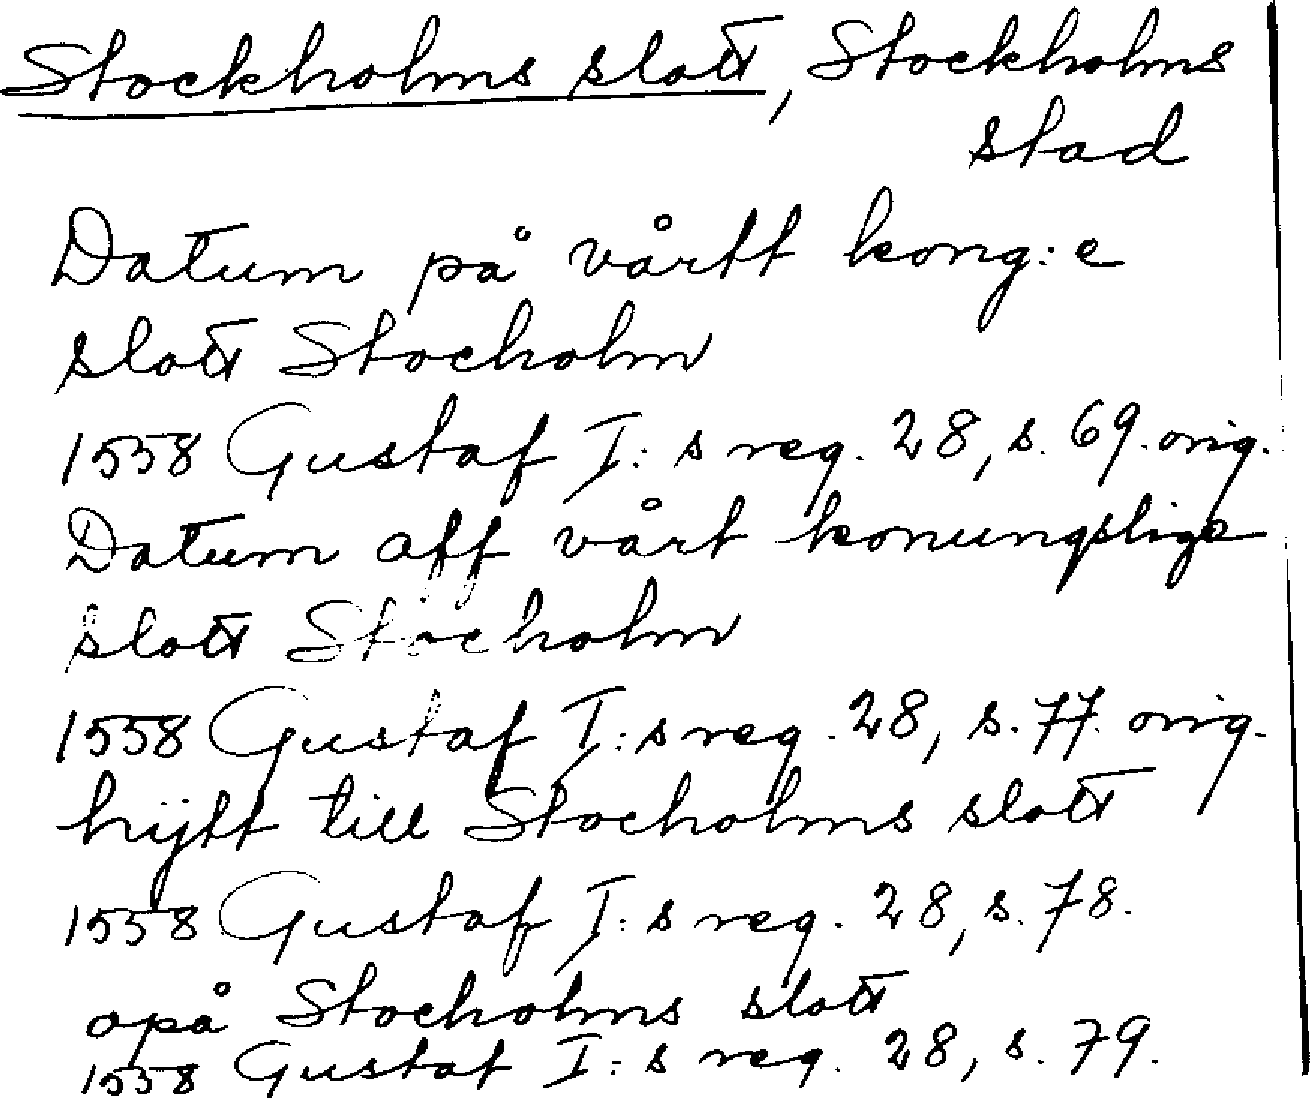 Stockholms slott, Stockholms
stad
Datum på vårtt kong:e
slott Stocholm
1558 Gustaf I:s reg. 28, s. 69. orig.
Datum aff vårt konungslige
slott Stocholm
1558 Gustaf I:s reg. 28, s. 77. orig.
hijtt till Stocholms slott
1558 Gustaf I:s reg. 28, s. 78.
opå Stocholms slott
1558 Gustaf I:s reg. 28, s. 79.